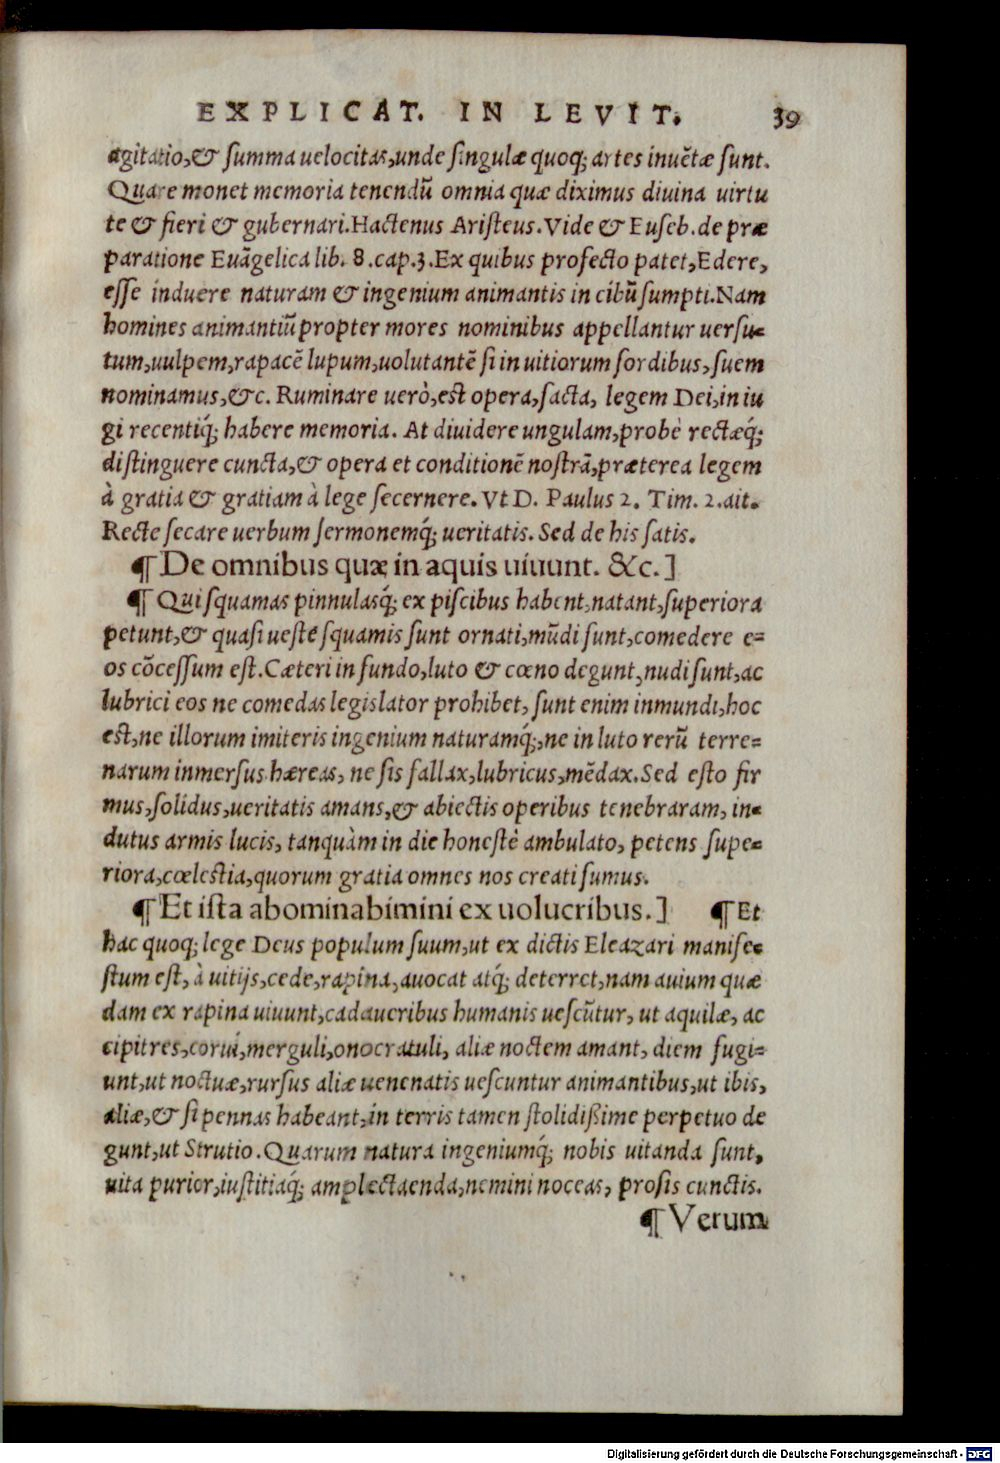 EXPLICAT. IN LEVIT. 39
agitatio,& summa uelocitas,unde singulæ quoq; artes inuẽtæ sunt.
Quare monet memoria tenendũ omnia quæ diximus diuina uirtu
te & fieri & gubernari.Hactenus Aristeus.Vide & Euseb.de præ
paratione Euãgelica lib. 8.cap.3.Ex quibus profecto patet,Edere,
esse induere naturam & ingenium animantis in cibũ sumpti.Nam
homines animantiũ propter mores nominibus appellantur uersu-
tum,uulpem,rapacẽ lupum,uolutantẽ si in uitiorum sordibus,suem
nominamus,&c. Ruminare uerò,est opera,facta, legem Dei,in iu
gi recentiq́; habere memoria. At diuidere ungulam,probè rectæq́;
distinguere cuncta,& opera et conditionẽ nostrã,præterea legem
à gratia & gratiam à lege secernere.Vt D. Paulus 2. Tim. 2.ait.
Recte secare uerbum sermonemq́; ueritatis. Sed de his satis.
¶ De omnibus quæ in aquis uiuunt. &c.]
¶ Qui squamas pinnulasq́; ex piscibus habent,natant,superiora
petunt,& quasi uestẽ squamis sunt ornati,mũdi sunt,comedere e=
os cõcessum est.Cæteri in fundo,luto & cœno degunt,nudi sunt,ac
lubrici eos ne comedas legislator prohibet, sunt enim inmundi,hoc
est,ne illorum imiteris ingenium naturamq́;,ne in luto rerũ terre=
narum inmersus hæreas, ne sis fallax,lubricus,mẽdax.Sed esto fir
mus,solidus,ueritatis amans,& abiectis operibus tenebraram, in-
dutus armis lucis, tanquàm in die honestè ambulato, petens supe-
riora,cœlestia,quorum gratia omnes nos creati sumus.
¶ Et ista abominabimini ex uolucribus.] ¶ Et
hac quoq; lege Deus populum suum,ut ex dictis Eleazari manife-
stum est, à uitijs,cede,rapina,auocat atq́; deterret,nam auium quæ
dam ex rapina uiuunt,cadaueribus humanis uescũtur, ut aquilæ, ac
cipitres,corui,merguli,onocratuli, aliæ noctem amant, diem fugi=
unt,ut noctuæ,rursus aliæ uenenatis uescuntur animantibus,ut ibis,
aliæ,& si pennas habeant,in terris tamen stolidißime perpetuo de
gunt,ut Strutio.Quarum natura ingeniumq́; nobis uitanda sunt,
uita purior,iustitiaq́; amplectaenda,nemini noceas, prosis cunctis.
¶ Verum
Digitalisierung gefördert durch die Deutsche Forschungsgemeinschaft - DFG